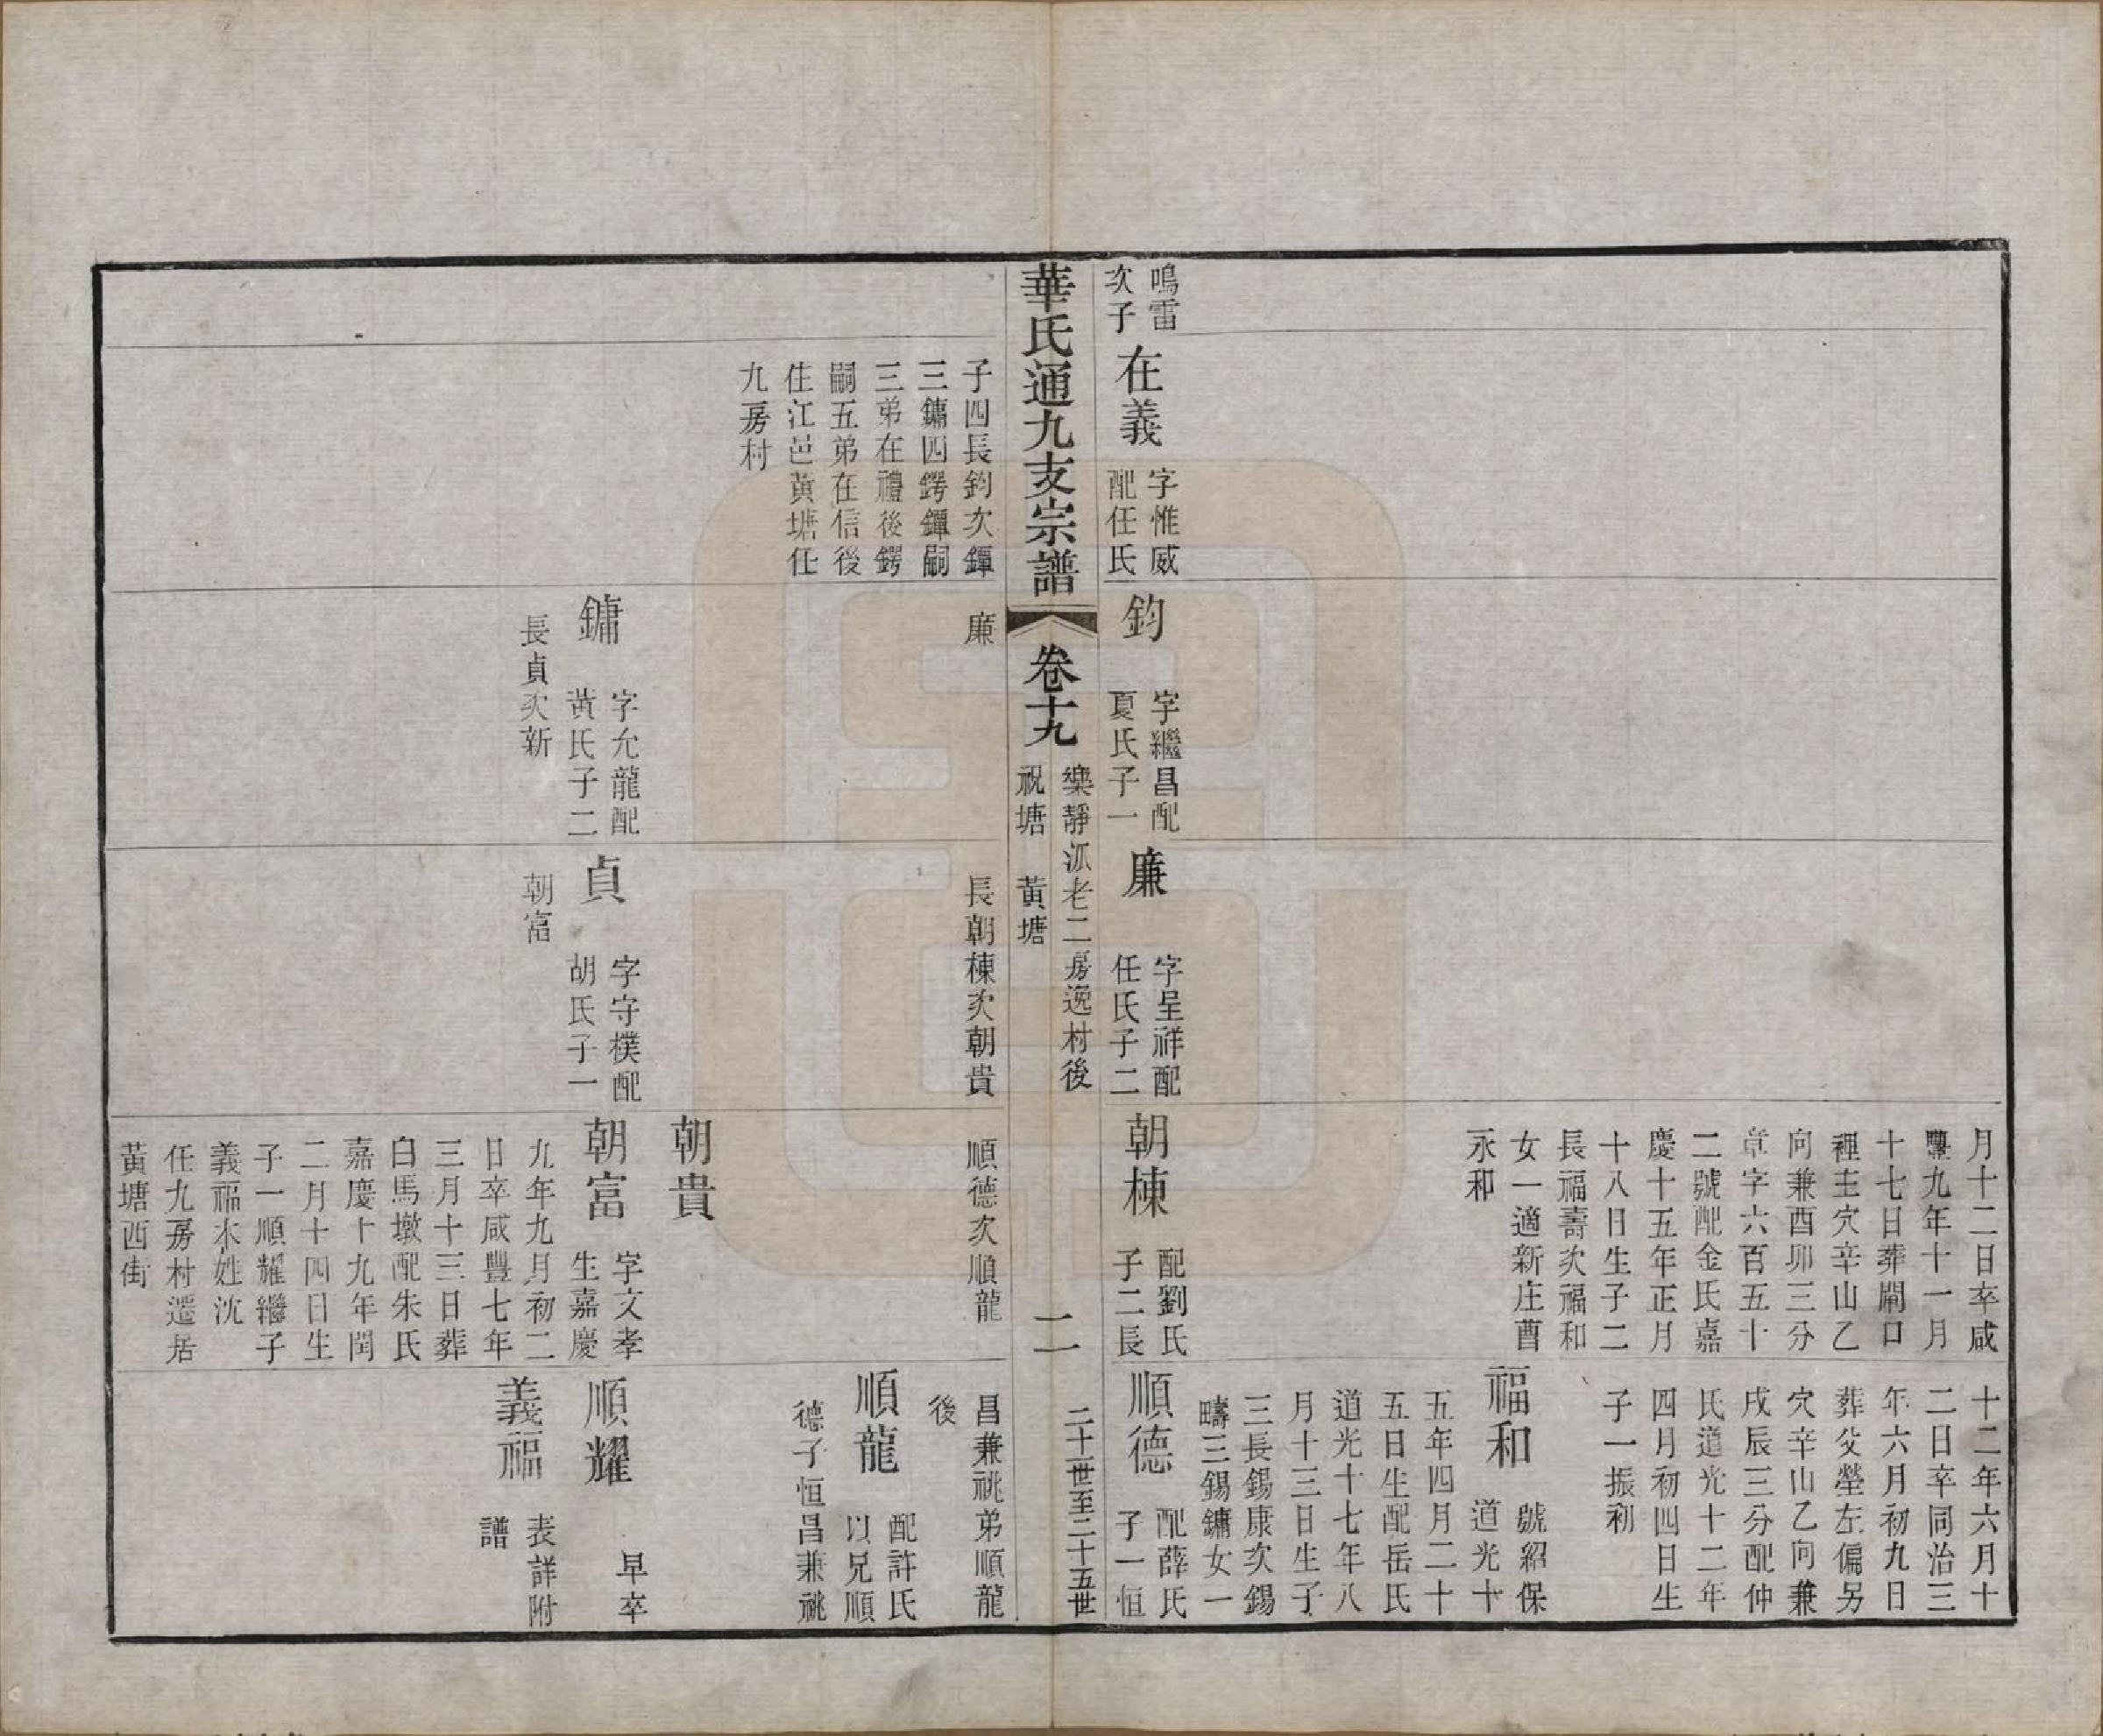 月十二日卒咸
豐九年十一月
十七日葬閘口
裡主穴辛山乙
向兼酉卯三分
章字六百五十
二號配金氏嘉
慶十五年正月
十八日生子二
長福壽次福和
女一適新庄酉
永和
十二年六月十
二日卒同治三
年六月初九日
葬父塋左偏另
穴辛山乙向兼
戌辰三分配仲
氏道光十二年
四月初四日生
子一振初
福和
號紹保
道光十
五年四月二十
五日生配岳氏
道光十七年八
月十三日生子
三長錫康次錫
疇三錫鏞女一
鳴雷
次子
在義
字惟威
配任氏
鈞
字繼昌配
夏氏子一
廉
字呈祥配
任氏子二
朝棟
配劉氏
子二長
順德
配薛氏
子一恒
華氏通九支宗譜
卷十九
樂靜派老二房逸村後
祝塘 黃塘
二
二十一世至二十五世
子四長鈞次鐔
三鏞四鍔鐔嗣
三弟在禮後鍔
嗣五弟在信後
住江邑黃塘任
九房村
廉
長朝棟次朝貴
順德次順龍
昌兼祧弟順龍
後
順龍
配許氏
以兄順
德子恒昌兼祧
朝貴
鏞
字允龍配
黃氏子二
長貞次新
貞
字守樸配
胡氏子一
朝富
朝富
字文孝
生嘉慶
九年九月初二
日卒咸豐七年
三月十三日葬
白馬墩配朱氏
嘉慶十九年閏
二月十四日生
子一順耀繼子
義福本姓沈
任九房村遷居
黃塘西街
順耀
早卒
義福
表詳附
譜